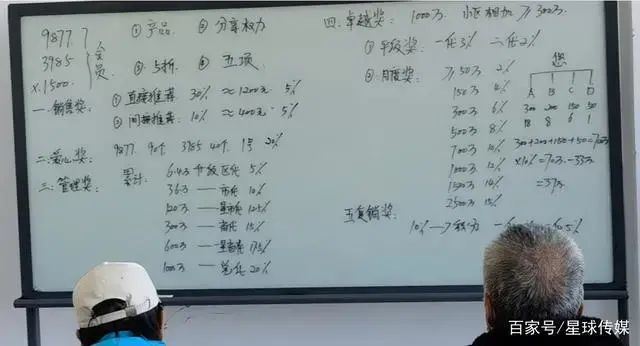 9877. ① 产品 ② 分享权力
3985 会员 ③ 5折 ④ 五项
x.1500
一.销售奖: ① 直接推荐: 30% ≈1200元 5%
② 间接推荐: 10% ≈400元 5%
二.爱心奖: 9877. 90个 3985 40个 1号 20%
三.管理奖: 累计: 6.4万 区代 5%
36万 — 市代 10%
120万 — 12.5%
300万 — 省代 15%
600万 — 17.5%
1000万 — 20%
四.卓越奖: 1000万 小区相加 ≥300万
① 年终奖: 一代3% 二代2%
② 月度奖: ≥50万 2%
150万 4%
300万 6%
500万 8%
700万 10%
1000万 12%
1500万 14%
2500万 15%
您
A B C D
300 200 150 50
18 8 6 1
300+200+150+50=700万
x10%=70万-33万
=37万
五.复销奖:
10%
百家号/星球传媒